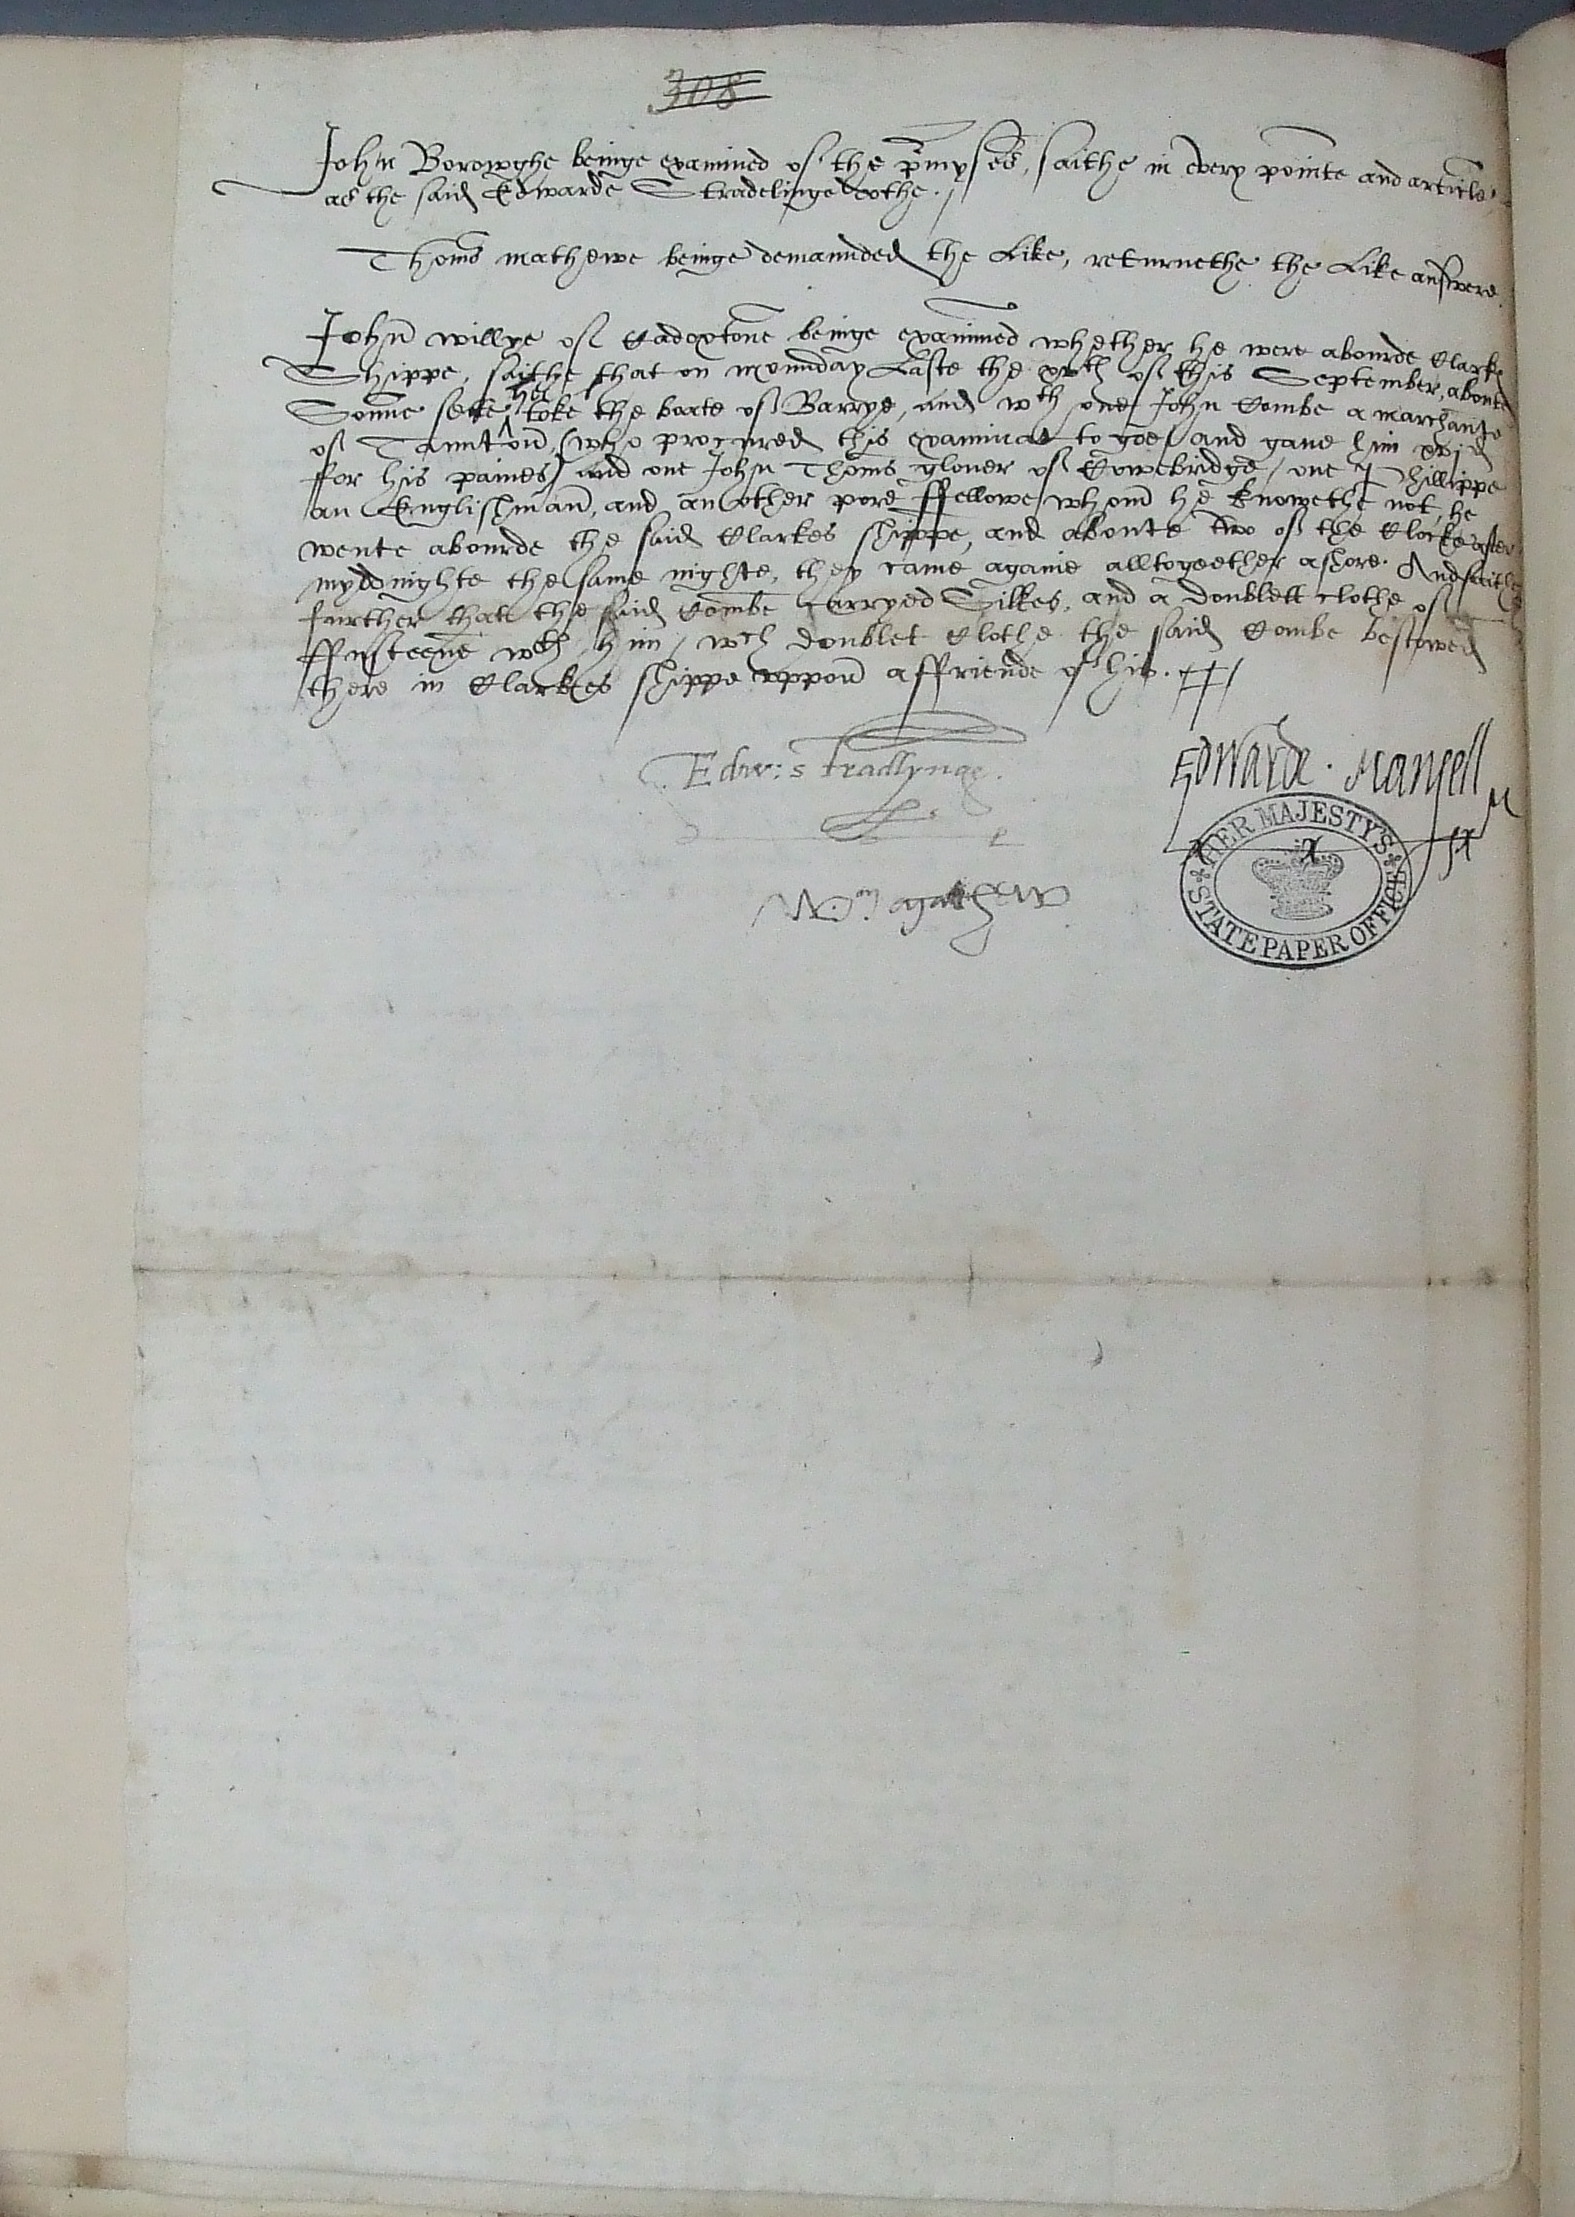 308
John Borowghe beinge examined of the p̄mysses, saithe in every pointe and article,
as the said Edwarde Stradelinge dothe./
Thom̄s mathewe beinge demaunded the Like, returnethe the Like answere.
John̄ willye of Cadoxtone beinge examined whether he were abourde Clarkes
Shippe, saithe that on mounday Laste the xvth of this September, aboute
Sonne sette, he toke the boate of Barrye, and wth one John Combe a marchante
of Taunton̄, (who procured this examinat to goe, and gave him xvjd
for his paines) and one John Thom̄s glover of Cowebridge, one Phillippe
an Englishman̄, and an other pore ffellowe whom̄ he knowethe not, he
wente abourde the said Clarkes shippe, and aboute two of the Clocke after
myddnighte the same nighte, they came againe alltogeether ashore. And saithe
further that the said Combe carryed Silkes, and a doublett clothe of
ffusteene wth him, wch doublet Clothe the said Combe bestowed
there in Clarkes shippe uppon̄ a ffriende of his.
Edw: Stradlynge.
Edwarde. Mansell
Wm mathew
HER MAJESTY'S
STATE PAPER OFFICE